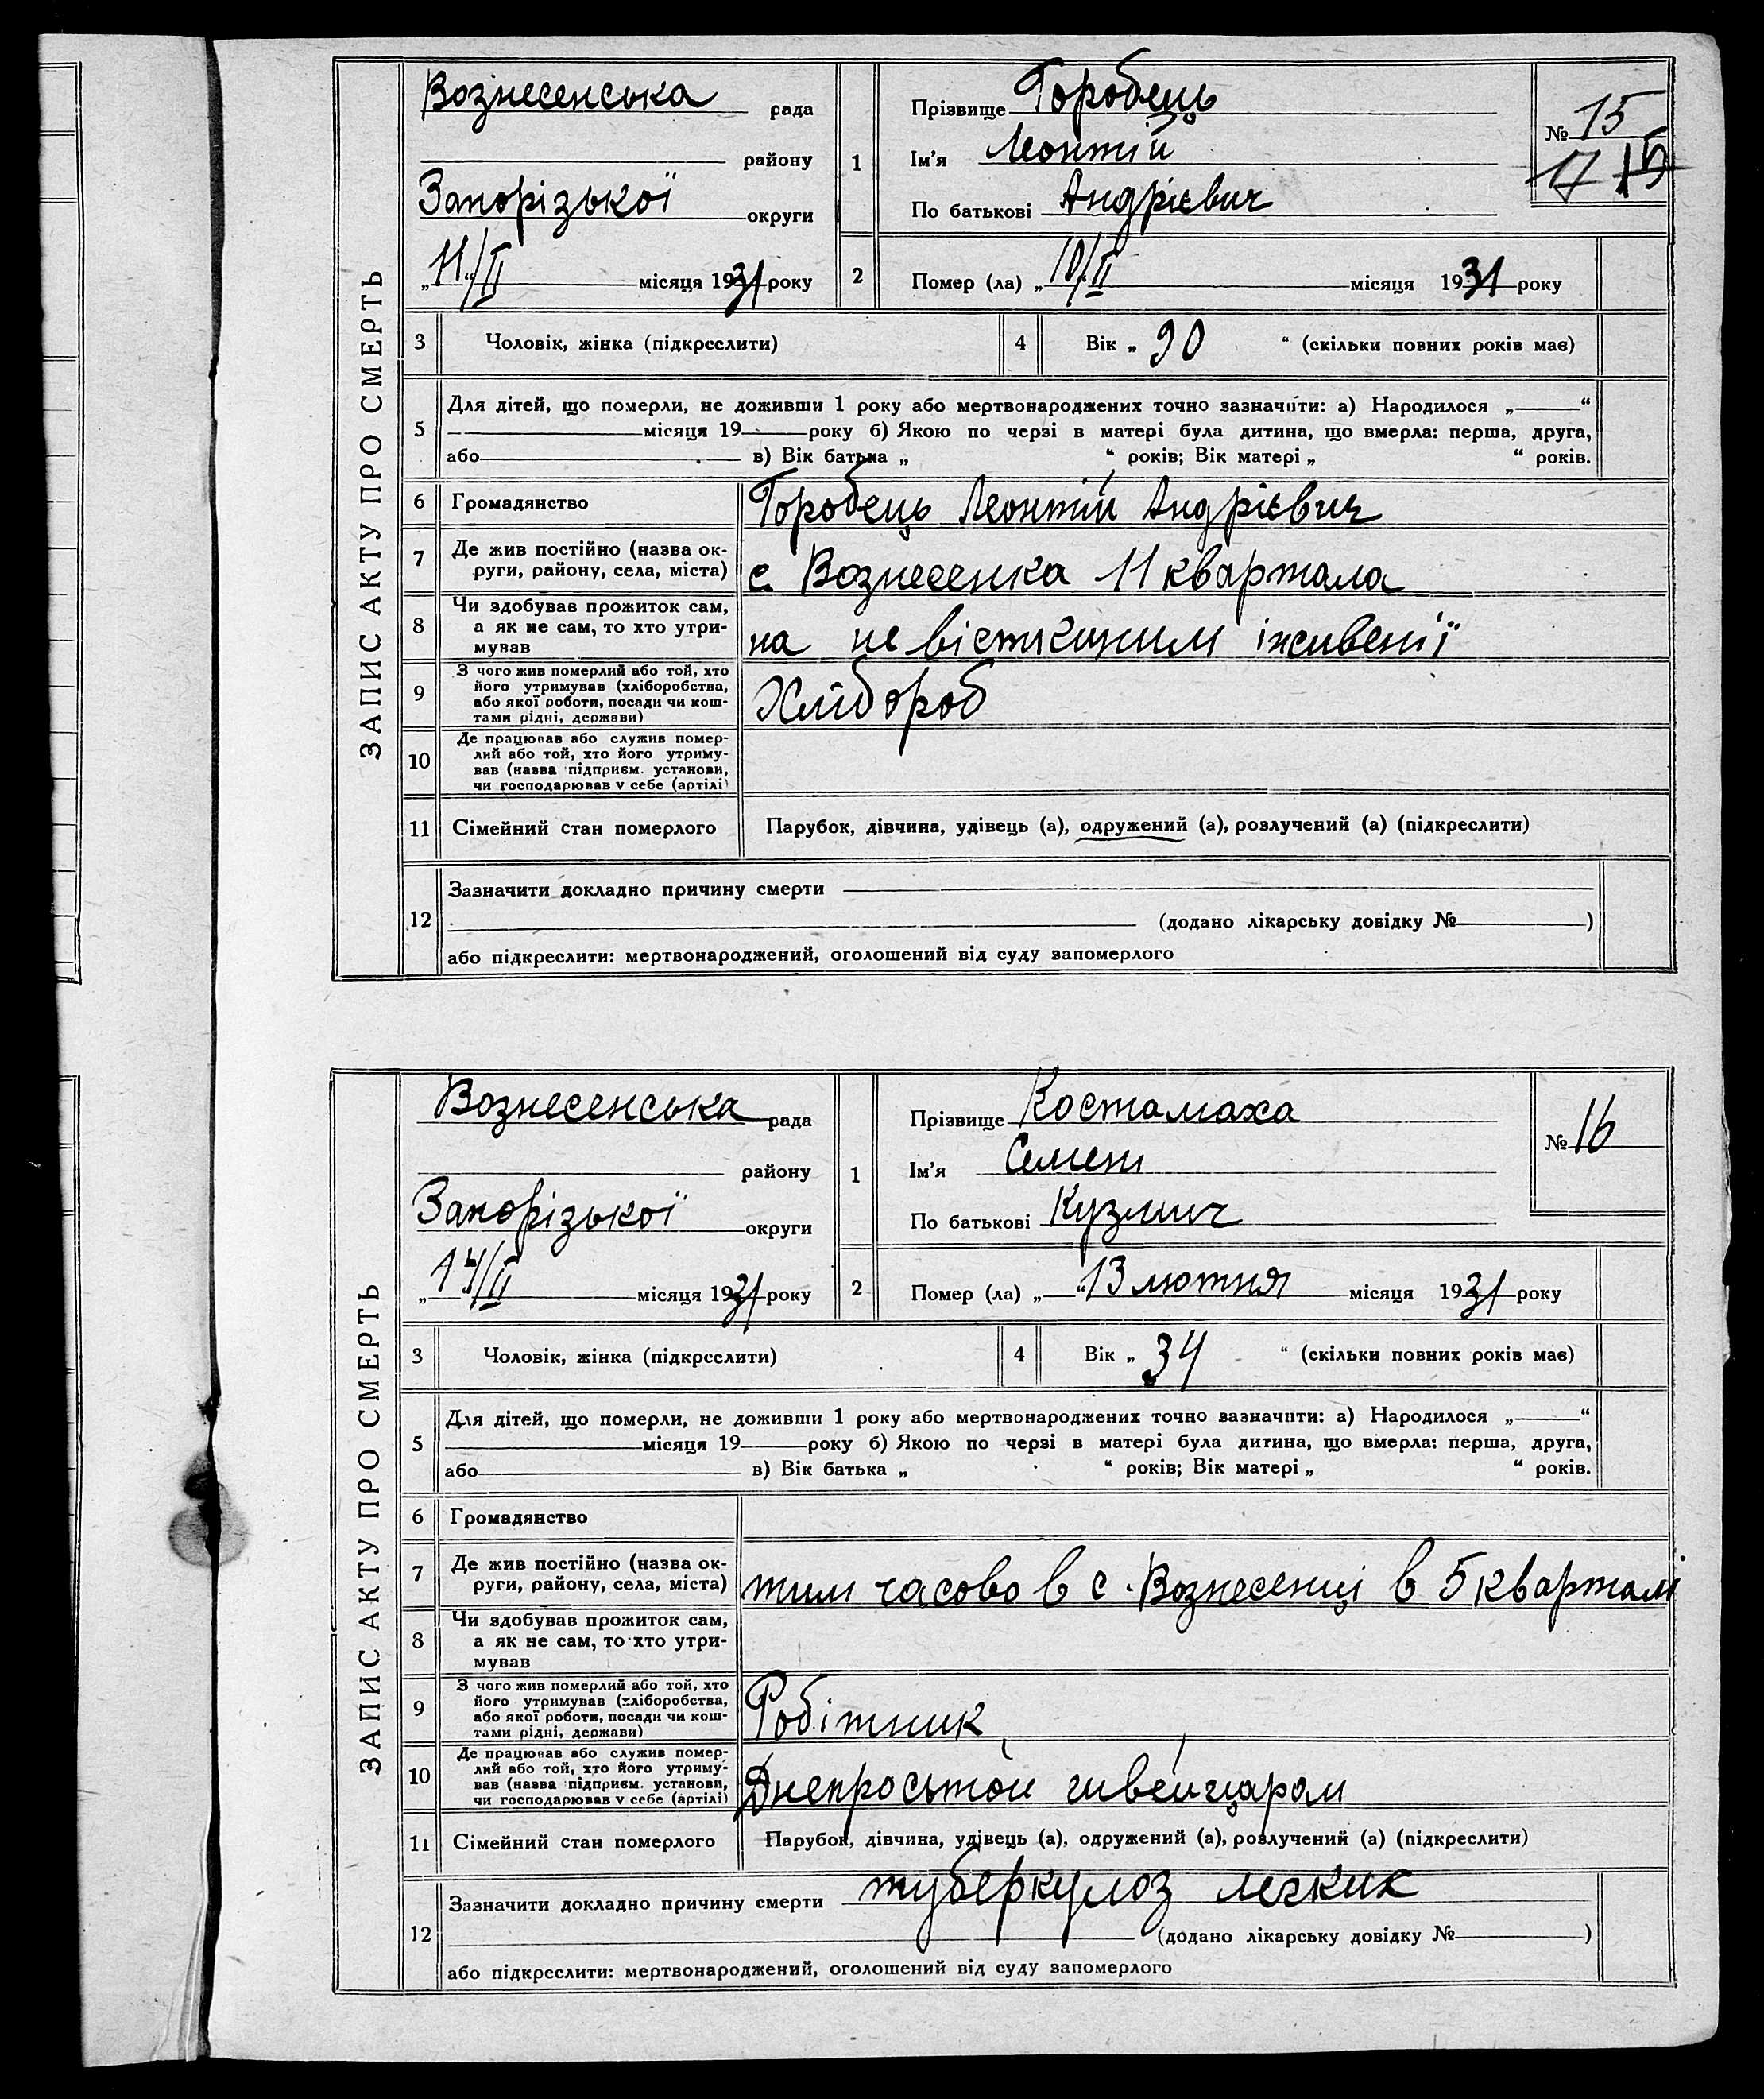 ЗАПИС АКТУ ПРО СМЕРТЬ
Вознесенська рада
району
Запорізької округи
„11/II місяця 1931 року
1
Прізвище Горобець
Ім'я Леонтій
По батькові Андрієвич
№ 15
17 15
2 Помер (ла) „10/II місяця 1931 року
3 Чоловік, жінка (підкреслити)
4 Вік „ 90 “ (скільки повних років має)
5 Для дітей, що померли, не доживши 1 року або мертвонароджених точно зазначити: а) Народилося „ “
місяця 19 року б) Якою по черзі в матері була дитина, що вмерла: перша, друга,
або в) Вік батька „ “ років; Вік матері „ “ років.
6 Громадянство Горобець Леонтій Андрієвич
7 Де жив постійно (назва ок-
руги, району, села, міста) с. Вознесенка 11 квартала
8 Чи здобував прожиток сам,
а як не сам, то хто утри-
мував на не
9 З чого жив померлий або той, хто
його утримував (хліборобства,
або якої роботи, посади чи кош-
тами рідні, держави) Хлібороб
10 Де працював або служив помер-
лий або той, хто його утриму-
вав (назва підприєм. установи,
чи господарював у себе (артілі)
11 Сімейний стан померлого Парубок, дівчина, удівець (а), одружений (а), розлучений (а) (підкреслити)
12 Зазначити докладно причину смерти
(додано лікарську довідку № )
або підкреслити: мертвонароджений, оголошений від суду запомерлого
ЗАПИС АКТУ ПРО СМЕРТЬ
Вознесенська рада
району
Запорізької округи
„14/II місяця 1931 року
1
Прізвище Костамаха
Ім'я Семен
По батькові Кузмич
№ 16
2 Помер (ла) „ “ 13 лютня місяця 1931 року
3 Чоловік, жінка (підкреслити)
4 Вік „ 34 “ (скільки повних років має)
5 Для дітей, що померли, не доживши 1 року або мертвонароджених точно зазначити: а) Народилося „ “
місяця 19 року б) Якою по черзі в матері була дитина, що вмерла: перша, друга,
або в) Вік батька „ “ років; Вік матері „ “ років.
6 Громадянство
7 Де жив постійно (назва ок-
руги, району, села, міста) тим часово в с. Вознесенці в 5 кварталі
8 Чи здобував прожиток сам,
а як не сам, то хто утри-
мував
9 З чого жив померлий або той, хто
його утримував (хліборобства,
або якої роботи, посади чи кош-
тами рідні, держави) Робітник
10 Де працював або служив помер-
лий або той, хто його утриму-
вав (назва підприєм. установи,
чи господарював у себе (артілі) Днепросьтой швейцаром
11 Сімейний стан померлого Парубок, дівчина, удівець (а), одружений (а), розлучений (а) (підкреслити)
12 Зазначити докладно причину смерти туберкулоз легких
(додано лікарську довідку № )
або підкреслити: мертвонароджений, оголошений від суду запомерлого